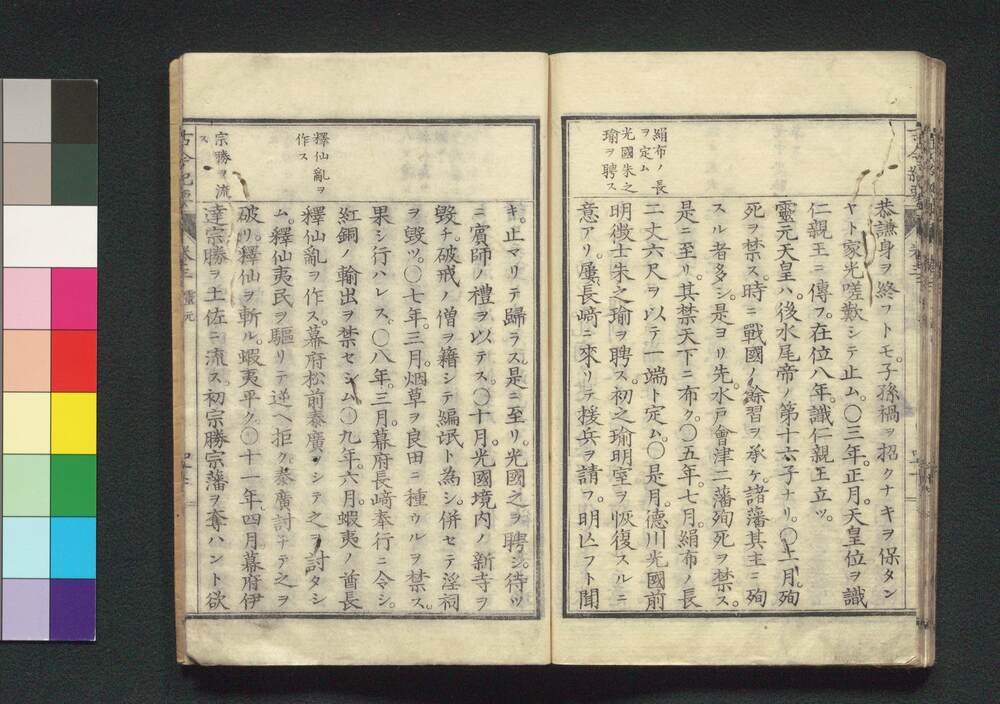 絹布ノ長
ヲ定ム
光國朱之
瑜ヲ聘ス
恭謙身ヲ終フトモ。子孫禍ヲ招クナキヲ保タン
ヤト家光嗟歎シテ止ム。〇三年。正月。天皇位ヲ識
仁親王ニ傳フ。在位八年。識仁親王立ツ。
靈元天皇ハ。後水尾帝ノ第十六子ナリ。〇十一月。殉
死ヲ禁ス。時ニ戰國ノ餘習ヲ承ケ。諸藩其主ニ殉
スル者多シ。是ヨリ先。水戸會津二藩殉死ヲ禁ス。
是ニ至リ。其禁天下ニ布ク。〇五年。七月。絹布ノ長
二丈六尺ヲ以テ一端ト定ム。〇是月。德川光國前
明徴士朱之瑜ヲ聘ス。初之瑜明室ヲ恢復スルニ
意アリ。屢長﨑ニ來リテ援兵ヲ請フ。明亾フト聞
釋仙亂ヲ
作ス
宗勝ヲ流
ス
キ。止マリテ歸ラス。是ニ至リ。光國之ヲ聘シ。待ツ
ニ賓師ノ禮ヲ以テス。〇十月。光國境内ノ新寺ヲ
毀チ。破戒ノ僧ヲ籍シテ編氓ト為シ。併セテ淫祠
ヲ毀ツ。〇七年。三月。烟草ヲ良田ニ種ウルヲ禁ス。
果シ行ハレス。〇八年。三月。幕府長﨑奉行ニ令シ。
紅銅ノ輸出ヲ禁セシム。〇九年。六月。蝦夷ノ酋長
釋仙亂ヲ作ス。幕府松前泰廣ヲシテ之ヲ討タシ
ム。釋仙夷民ヲ驅リテ逆ヘ拒ク。泰廣討チテ之ヲ
破リ。釋仙ヲ斬ル。蝦夷平ク。〇十一年。四月。幕府伊
達宗勝ヲ土佐ニ流ス。初宗勝宗藩ヲ奪ハント欲
古今紀要 卷三 靈元